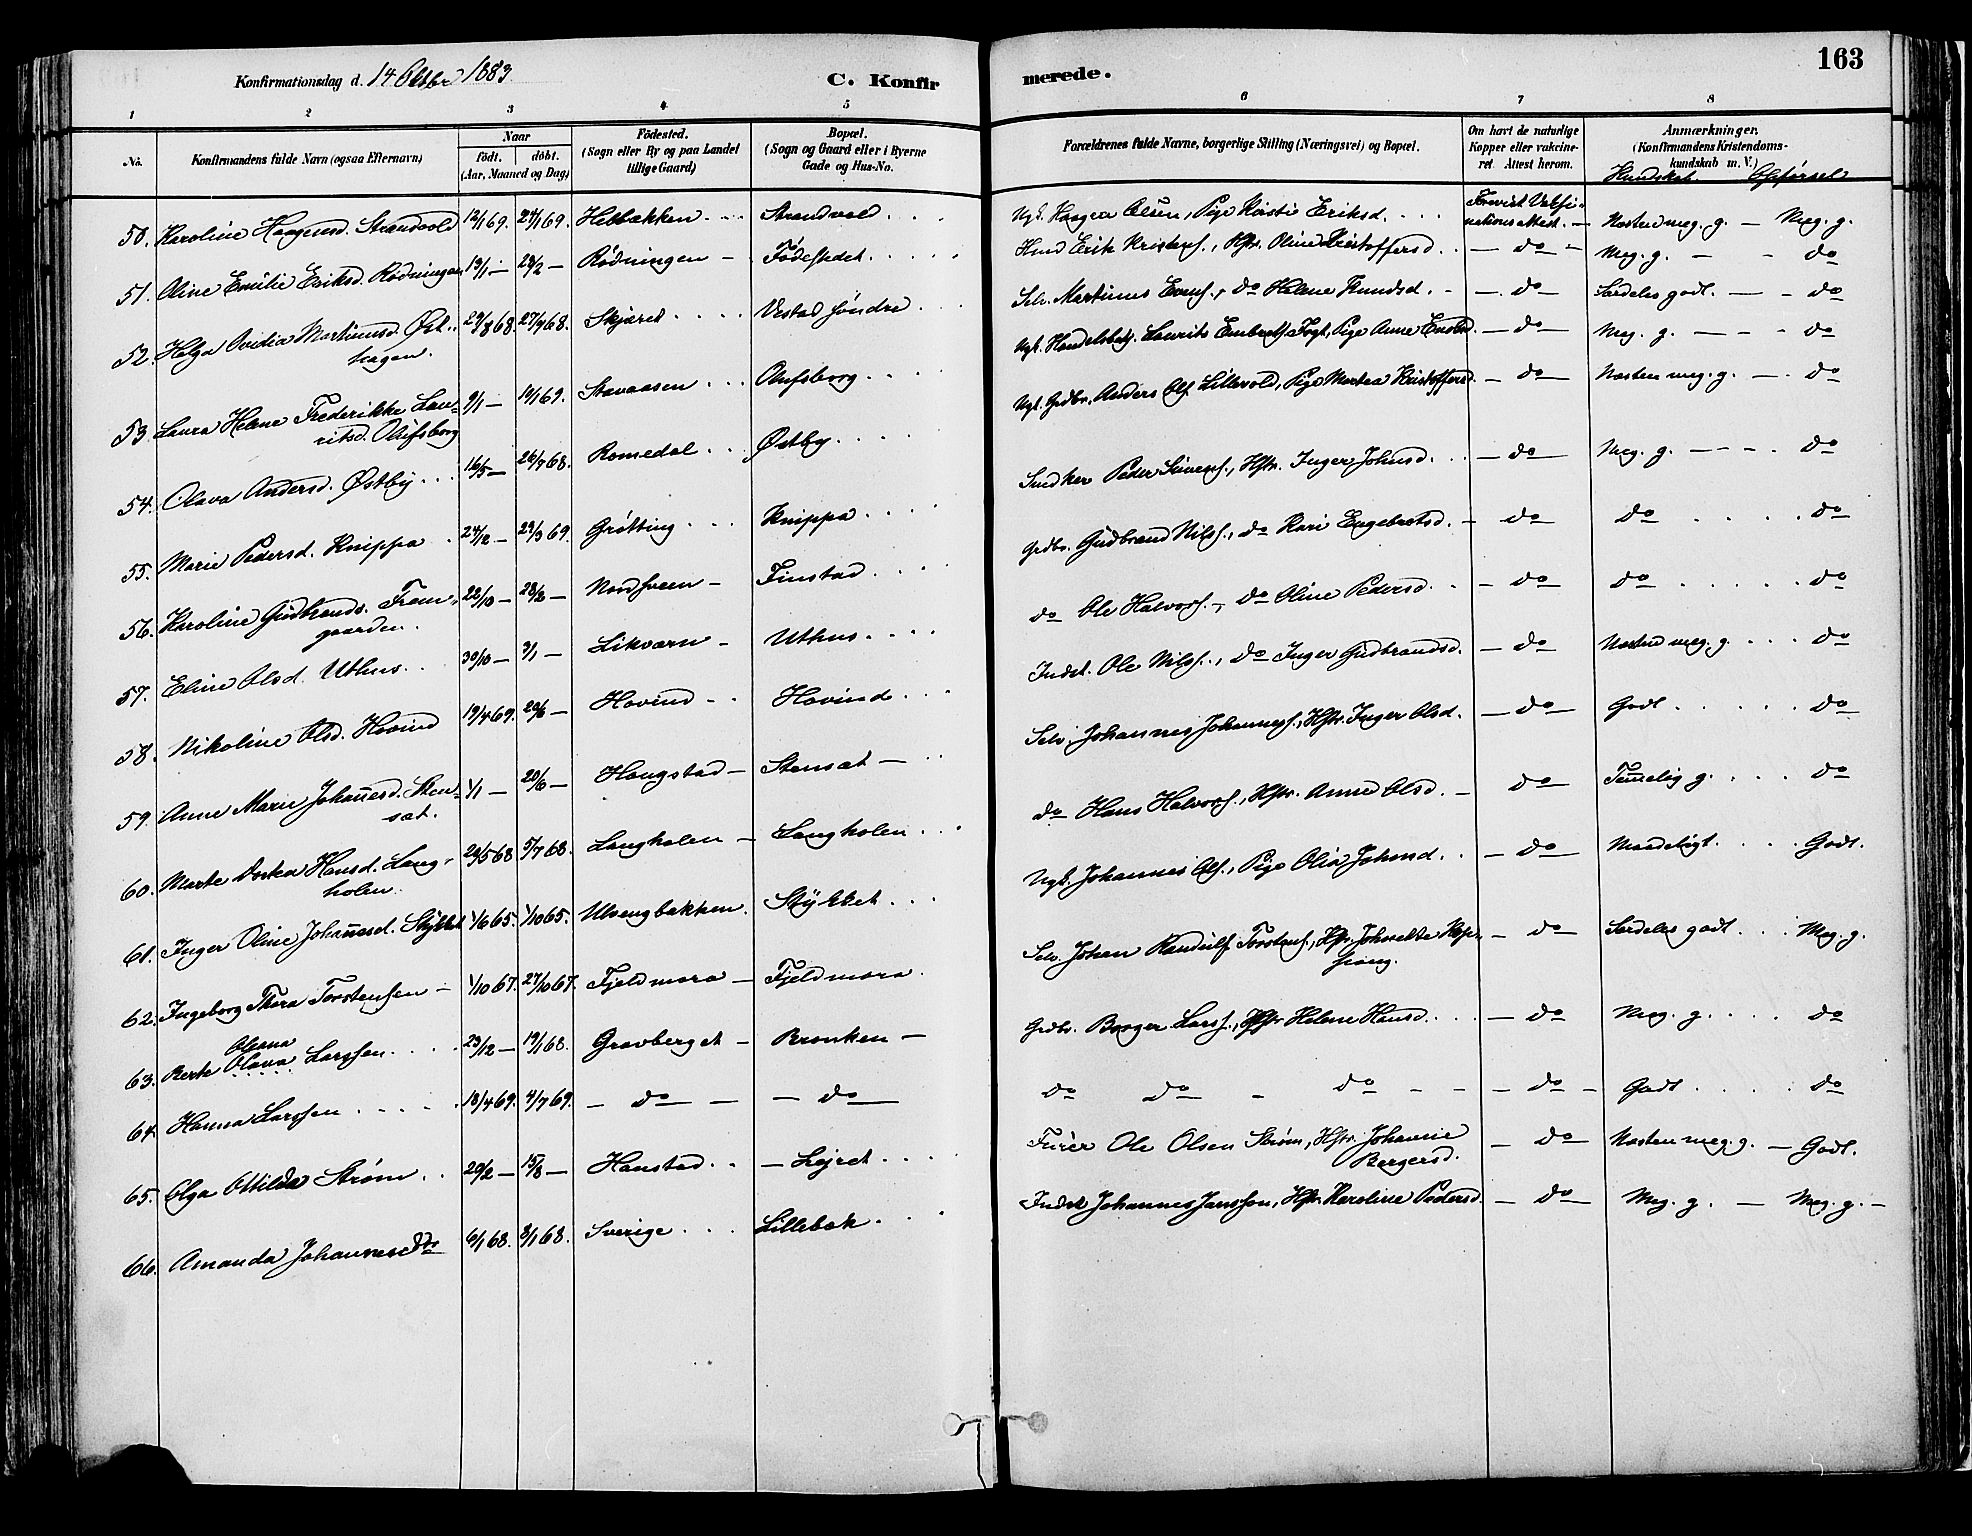 163
Konfirmationsdag d. 14 Oktbr 1883
C. Konfirmerede.
1 2 3 4 5 6 7 8
No.
Konfirmandens fulde Navn (ogsaa Efternavn)
Naar
födt. döbt.
(Aar, Maaned og Dag)
Födested.
(Sogn eller By og paa Landet
tillige Gaard)
Bopæl.
(Sogn og Gaard eller i Byerne
Gade og Hus-No.
Forældrenes fulde Navne, borgerlige Stilling (Næringsvei) og Bopæl.
Om havt de naturlige
Kopper eller vakcine-
ret. Attest herom.
Anmærkninger.
(Konfirmandens Kristendoms-
kundskab m. V.)
Kundskab. Opførsel
50. Karoline Haagensd. Strandvold 12/1 69. 24/1 69. Hetbækken Strandvold Ugk. Haagen Olsen, Pige Kristi Eriksd. Forevist Vaksi-
nationsattest. Næsten meg. g. — Meg. g.
51. Oline Emilie Eriksd. Rødningen 19/1 — 24/2 — Rødningen — Fødestedet Hmd Erik Kristens., Hstr. Oline Kristoffersd. — do — Meg. g. — do
52. Helga Ovidia Martinusd. Øst-
hagen. 29/8 68. 27/9 68. Skjæret Vestad søndre Selv. Martinus Evens., do Helene Knudsd. — do — Særdeles godt. — do
53. Laura Helene Frederikke Lau-
ritsd. Olufsborg 9/1 — 19/1 69. Stavaasen Olufsborg Ugk. Handelsbetj. Laurits Embrets. Fogt, Pige Anne — do — Meg. g. — do
54. Olava Andersd. Østby 16/5 — 26/7 68. Romedal Østby Ugk. Grdbr. Anders Ols. Lillevold, Pige Martea Kristoffersd. — do — Næsten meg. g. — do
55. Marie Pedersd. Knippa 24/12 — 29/3 69. Grøtting Knippa Snedker Peder Simens., Hstr. Inger Johnsd. — do — Meg. g. — do
56. Karoline Gudbrands. Fram-
gaarden. 22/10 — 28/2 — Nordsveen — Finstad Grdbr. Gudbrand Nils., do Kari Engebretsd. — do do do
57. Eline Olsd. Uthus 30/10 — 3/1 — Likværn — Uthus do Ole Halvors., do Oline Pedersd. — do do do
58. Nikoline Olsd. Hovind 19/4 69. 20/6 — Hovind Hovind Indst. Ole Nils., do Inger Gudbrandsd. — do Næsten meg. g. do
59. Anne Marie Johannesd. Sten-
sæt. 1/1 — 20/6 — Haugstad — Stensæt — Selv. Johannes Johannes., Hstr. Inger Olsd. — do — Godt do
60. Marte Dortea Hansd. Lang-
holen. 29/5 68 5/7 68. Langholen — Langholen do Hans Halvors., Hstr. Anne Olsd. — do Temmelig g. do
61. Inger Oline Johannesd. Stykket 1/6 65. 1/10 65. Ulvengbakken. Stykket Ugk. Johannes Ols., Pige Olia Johnsd. — do — Maadeligt. Godt.
62. Ingeborg Thora Torstensen — 1/10 67. 27/10 67. Fjeldmora — Fjeldmora Selv. Johan Randulf Torstens., Hstr. — do — Særdeles godt Meg. g.
63. Berte Olava Larssen
Oleana 29/12 — 19/1 68. Gravberget — Bronken — Grdbr. Borger Lars., Hstr Helene Hansd. — do Meg. g. do
64. Hanna Larssen 18/4 69. 4/7 69. — do — — do — do do do — do — Godt do
65. Olga Otilde Strøm 20/2 — 15/8 — Hanstad — Lejret Furér Ole Olsen Strøm, Hstr. Johanne
Bergersd. — do Næsten meg. g. — Godt.
66. Amanda Johannesdtr 6/1 68. 8/1 68. Sverige Lillebæk Indst Johannes Janssen, Hstr. Karoline Pedersd. — do — Meg. g. — Meg. g. —